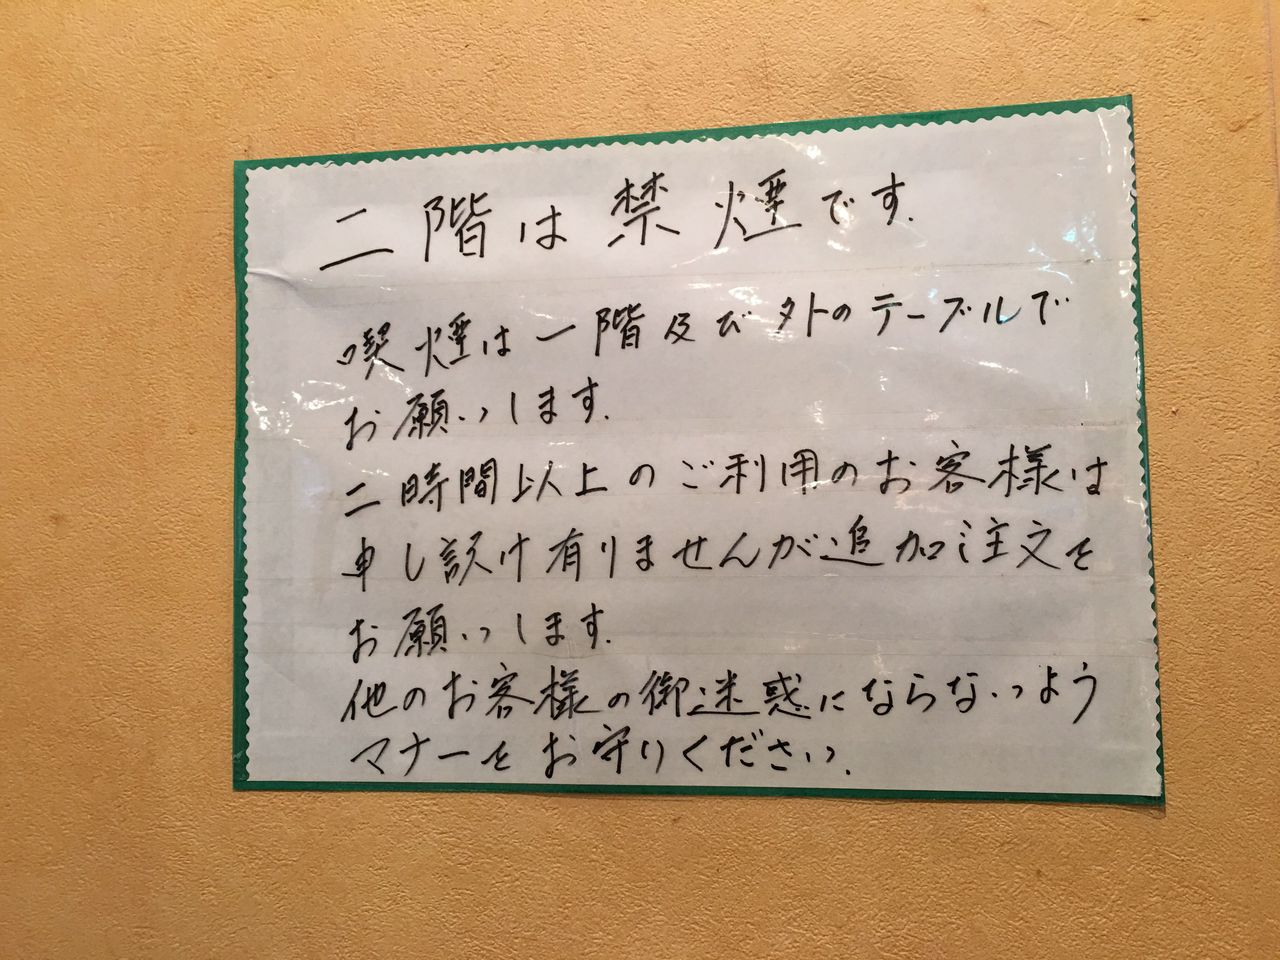 二階は禁煙です.
喫煙は一階及び外のテーブルで
お願いします.
二時間以上のご利用のお客様は
申し訳け有りませんが追加注文を
お願いします.
他のお客様の御迷惑にならないよう
マナーをお守りください.